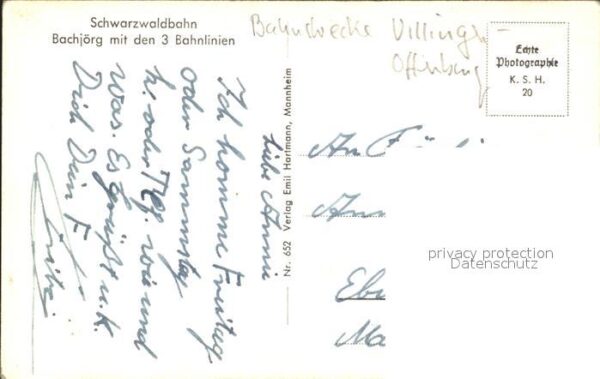 Schwarzwaldbahn
Bachjörg mit den 3 Bahnlinien
Bahnstrecke Villingen-
Offenburg
Echte
Photographie
K. S. H.
20
Nr. 652 Verlag Emil Hartmann, Mannheim
Liebe Anni
Ich komme Freitag
oder Samstag
hi. oder Tleg. wie und
was. Es grüßt u. K.
Dich Dein F
An F
An
Ebe
Ma
privacy protection
Datenschutz